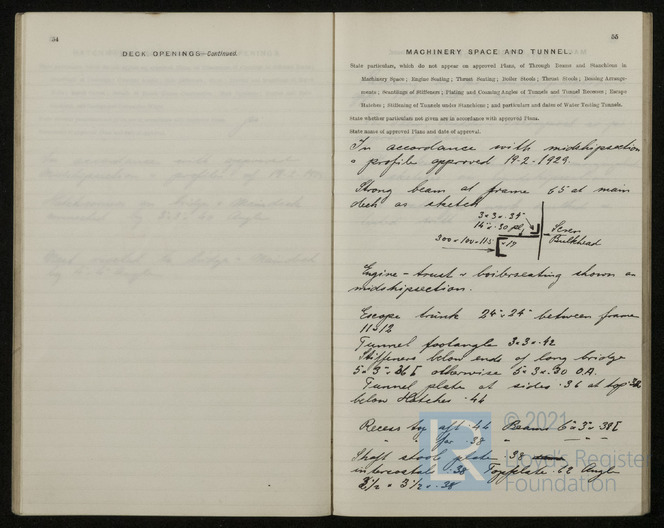 54
DECK OPENINGS—Continued.
55
MACHINERY SPACE AND TUNNEL.
State particulars, which do not appear on approved Plans, of Through Beams and Stanchions in
Machinery Space; Engine Seating; Thrust Seating; Boiler Stools; Thrust Stools; Docking Arrange-
ments; Scantlings of Stiffeners; Plating and Coaming Angles of Tunnels and Tunnel Recesses; Escape
Hatches; Stiffening of Tunnels under Stanchions; and particulars and dates of Water Testing Tunnels.
State whether particulars not given are in accordance with approved Plans.
State name of approved Plans and date of approval.
In accordance with midshipsection
profile approved 19-2-1929
Strong beam at frame 65 at main
deck as sketch
3 x 3 x .34
14 x .50 pl
300 x 100 x 11.5
Screen
Bulkhead
Engine - trust boilerseating shown on
midshipsection.
Escape trunk 24" x 24" between frame
11 & 12
Tunnel footangle 3 x 3 x .42
Stiffeners below ends of long bridge
5 x 3 x .36 otherwise 5 x 3 x .30 O.A.
Tunnel plate at sides .36 at top
below Hatches .44
Recess top aft .44 Beams 6 x 3 x .38
" " for .38 " " "
Shaft stool plate .38
intercostals .38 Topplate .62 Angle
3 1/2 x 3 1/2 x .38
© 2021
Lloyd's Register
Foundation